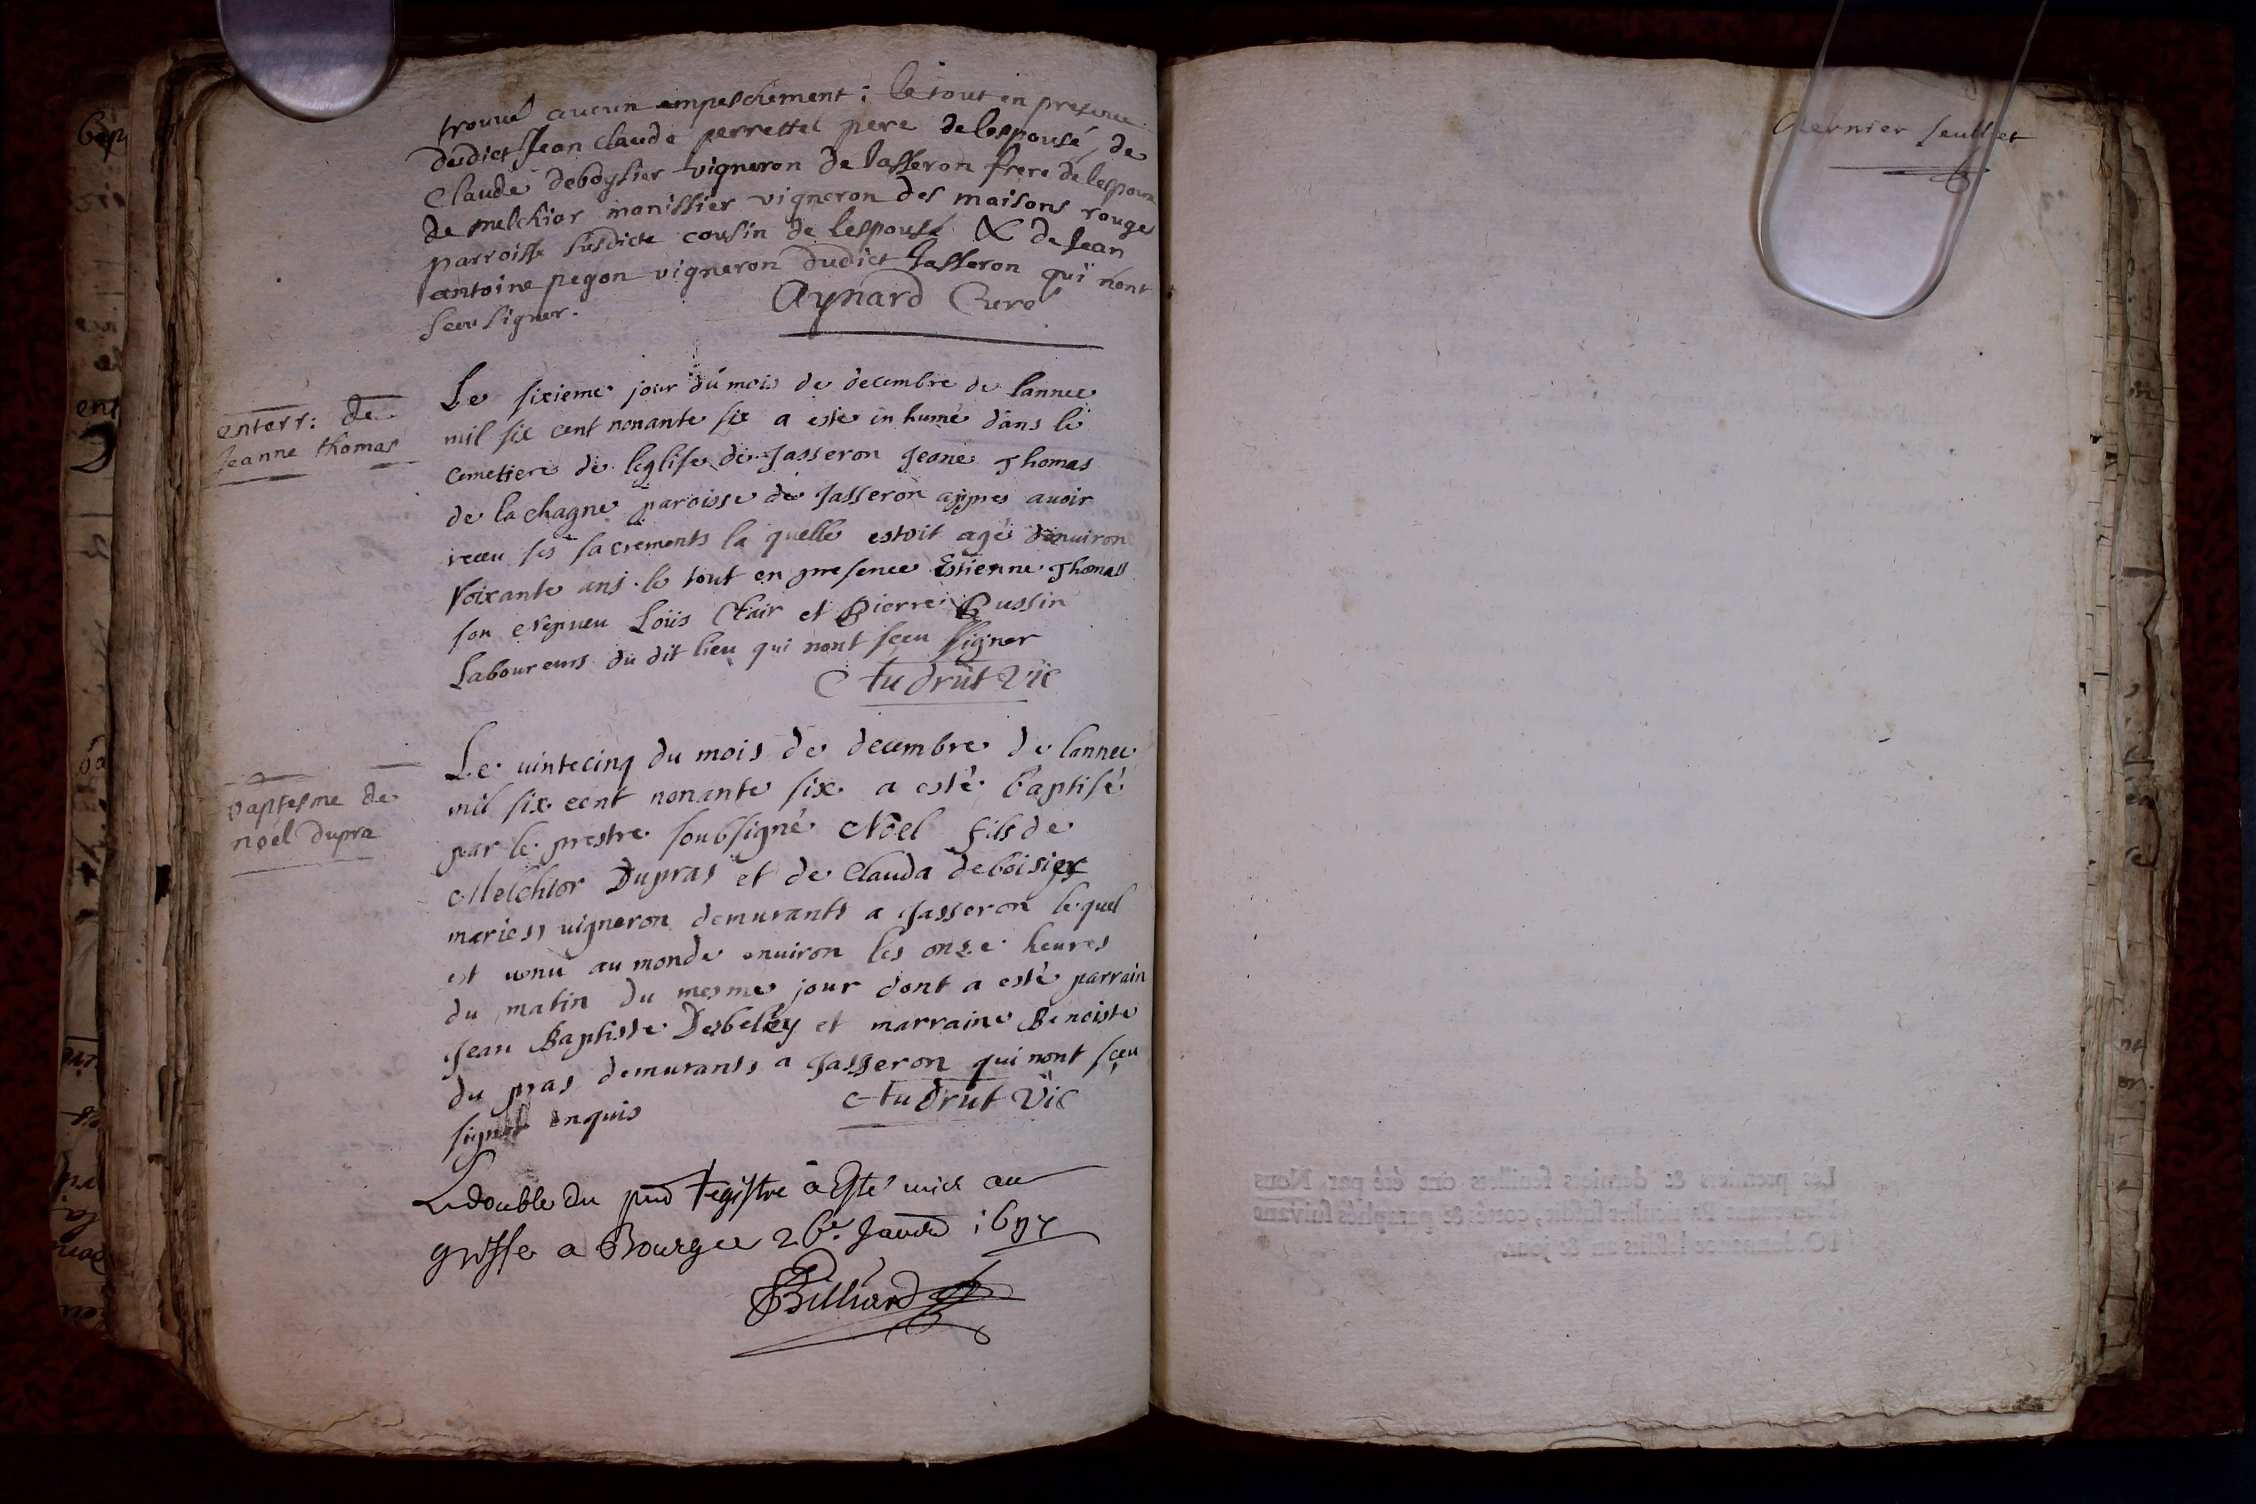 trouué aucun empeschement : le tout en presence
dudict Jean Claude perrettet pere de lespousé, de
Claude deboysier vigneron de Jasseron frere de lespouse
de melchior monissier vigneron des maisons rouge
parroisse susdicte cousin de lespousé & de Jean
antoine pegon vigneron dudict Jasseron qui nont
sceu signer.
Aynard Curé
enterr: de
Jeanne thomas
Le sixieme jour du mois de decembre de lannee
mil six cent nonante six a esté in humé dans le
cemetiere de leglise de Jasseron Jeane Thomas
de la chagne paroisse de Jasseron appres auoir
receu ses sacrements la quelle estoit agé denuiron
soixante ans. le tout en presence Estienne Thomas
son nepueu Loüis Clair et Pierre Pussin
Laboureurs du dit lieu qui nont sceu signer
Audrut Vic
baptesme de
noel dupra
Le uintecinq du mois de decembre de lannee
mil six cent nonante six a esté baptisé
par le prestre soubsigné Nöel fils de
Melchior Dupras et de Clauda deboisier
mariess uigneron demurants a Jasseron lequel
est uenu au monde enuiron les onze heures
du matin du mesme jour dont a esté parrain
Jean Baptiste Desbeley et marraine Benoiste
du pras demurants a Jasseron qui nont sceu
signer enquis
Audrut Vic
Le double du pnt Registre a Esté mis au
greffe a Bourg ce 26e. Janvr 1697
Billiard
dernier feuillet
Les premiers & derniers feuillets ont été par Nous
cotés & paraphés suivant